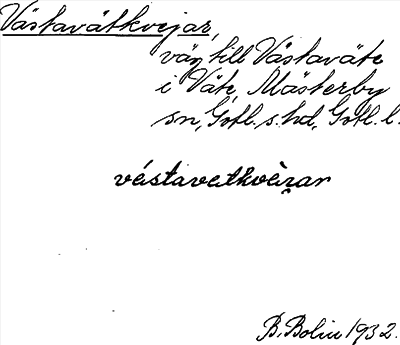 Västavätkvejar,
väg till Västaväte
i Väte, Mästerby
sn, Gotl. s. hd, Gotl. l.
västavätkvèi̯ar
B. Bolin 1932.